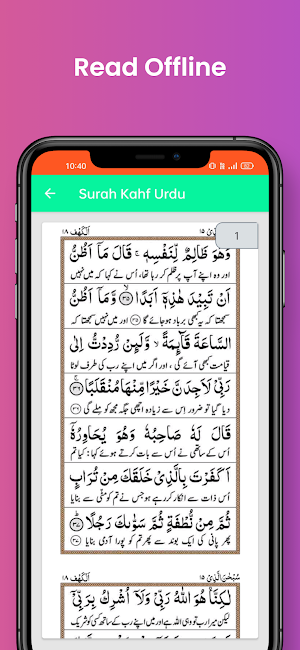 Read Offline
10:40
Surah Kahf Urdu
اَلْكَهْف ١٨
١٥
1
وَهُوَ ظَالِمٌ لِّنَفْسِهٖ ۚ قَالَ مَاۤ اَظُنُّ
اور وہ اپنے آپ پر ظلم کر رہا تھا، اُس نے کہا کہ میں نہیں
اَنْ تَبِيْدَ هٰذِهٖۤ اَبَدًا ﴿٣٥﴾ وَّمَاۤ اَظُنُّ
سمجھتا کہ یہ کبھی برباد ہو جائے گا ﴿٣٥﴾ اور میں نہیں سمجھتا کہ
السَّاعَةَ قَآئِمَةً ۙ وَّلَئِنْ رُّدِدْتُّ اِلٰى
قیامت کبھی آئے گی، اور اگر میں اپنے رب کی طرف لوٹا
رَبِّيْ لَاَجِدَنَّ خَيْرًا مِّنْهَا مُنْقَلَبًا ﴿٣٦﴾
دیا گیا تو ضرور اِس سے زیادہ اچھی جگہ مجھ کو ملے گی ﴿٣٦﴾
قَالَ لَهٗ صَاحِبُهٗ وَهُوَ يُحَاوِرُهٗۤ
اُس کے ساتھی نے اُس سے بات کرتے ہوئے کہا: کیا تم
اَكَفَرْتَ بِالَّذِيْ خَلَقَكَ مِنْ تُرَابٍ
اُس ذات سے انکار کر رہے ہو جس نے تم کو مٹی سے بنایا
ثُمَّ مِنْ نُّطْفَةٍ ثُمَّ سَوّٰىكَ رَجُلًا ﴿٣٧﴾
پھر پانی کی ایک بوند سے پھر تم کو پورا آدمی بنایا ﴿٣٧﴾
اَلْكَهْف ١٨
سُبْحٰنَ الَّذِيْ ١٥
لٰكِنَّا۠ هُوَ اللّٰهُ رَبِّيْ وَلَاۤ اُشْرِكُ بِرَبِّيْۤ
لیکن میرا رب تو وہی اللہ ہے اور میں اپنے رب کے ساتھ کسی کو شریک